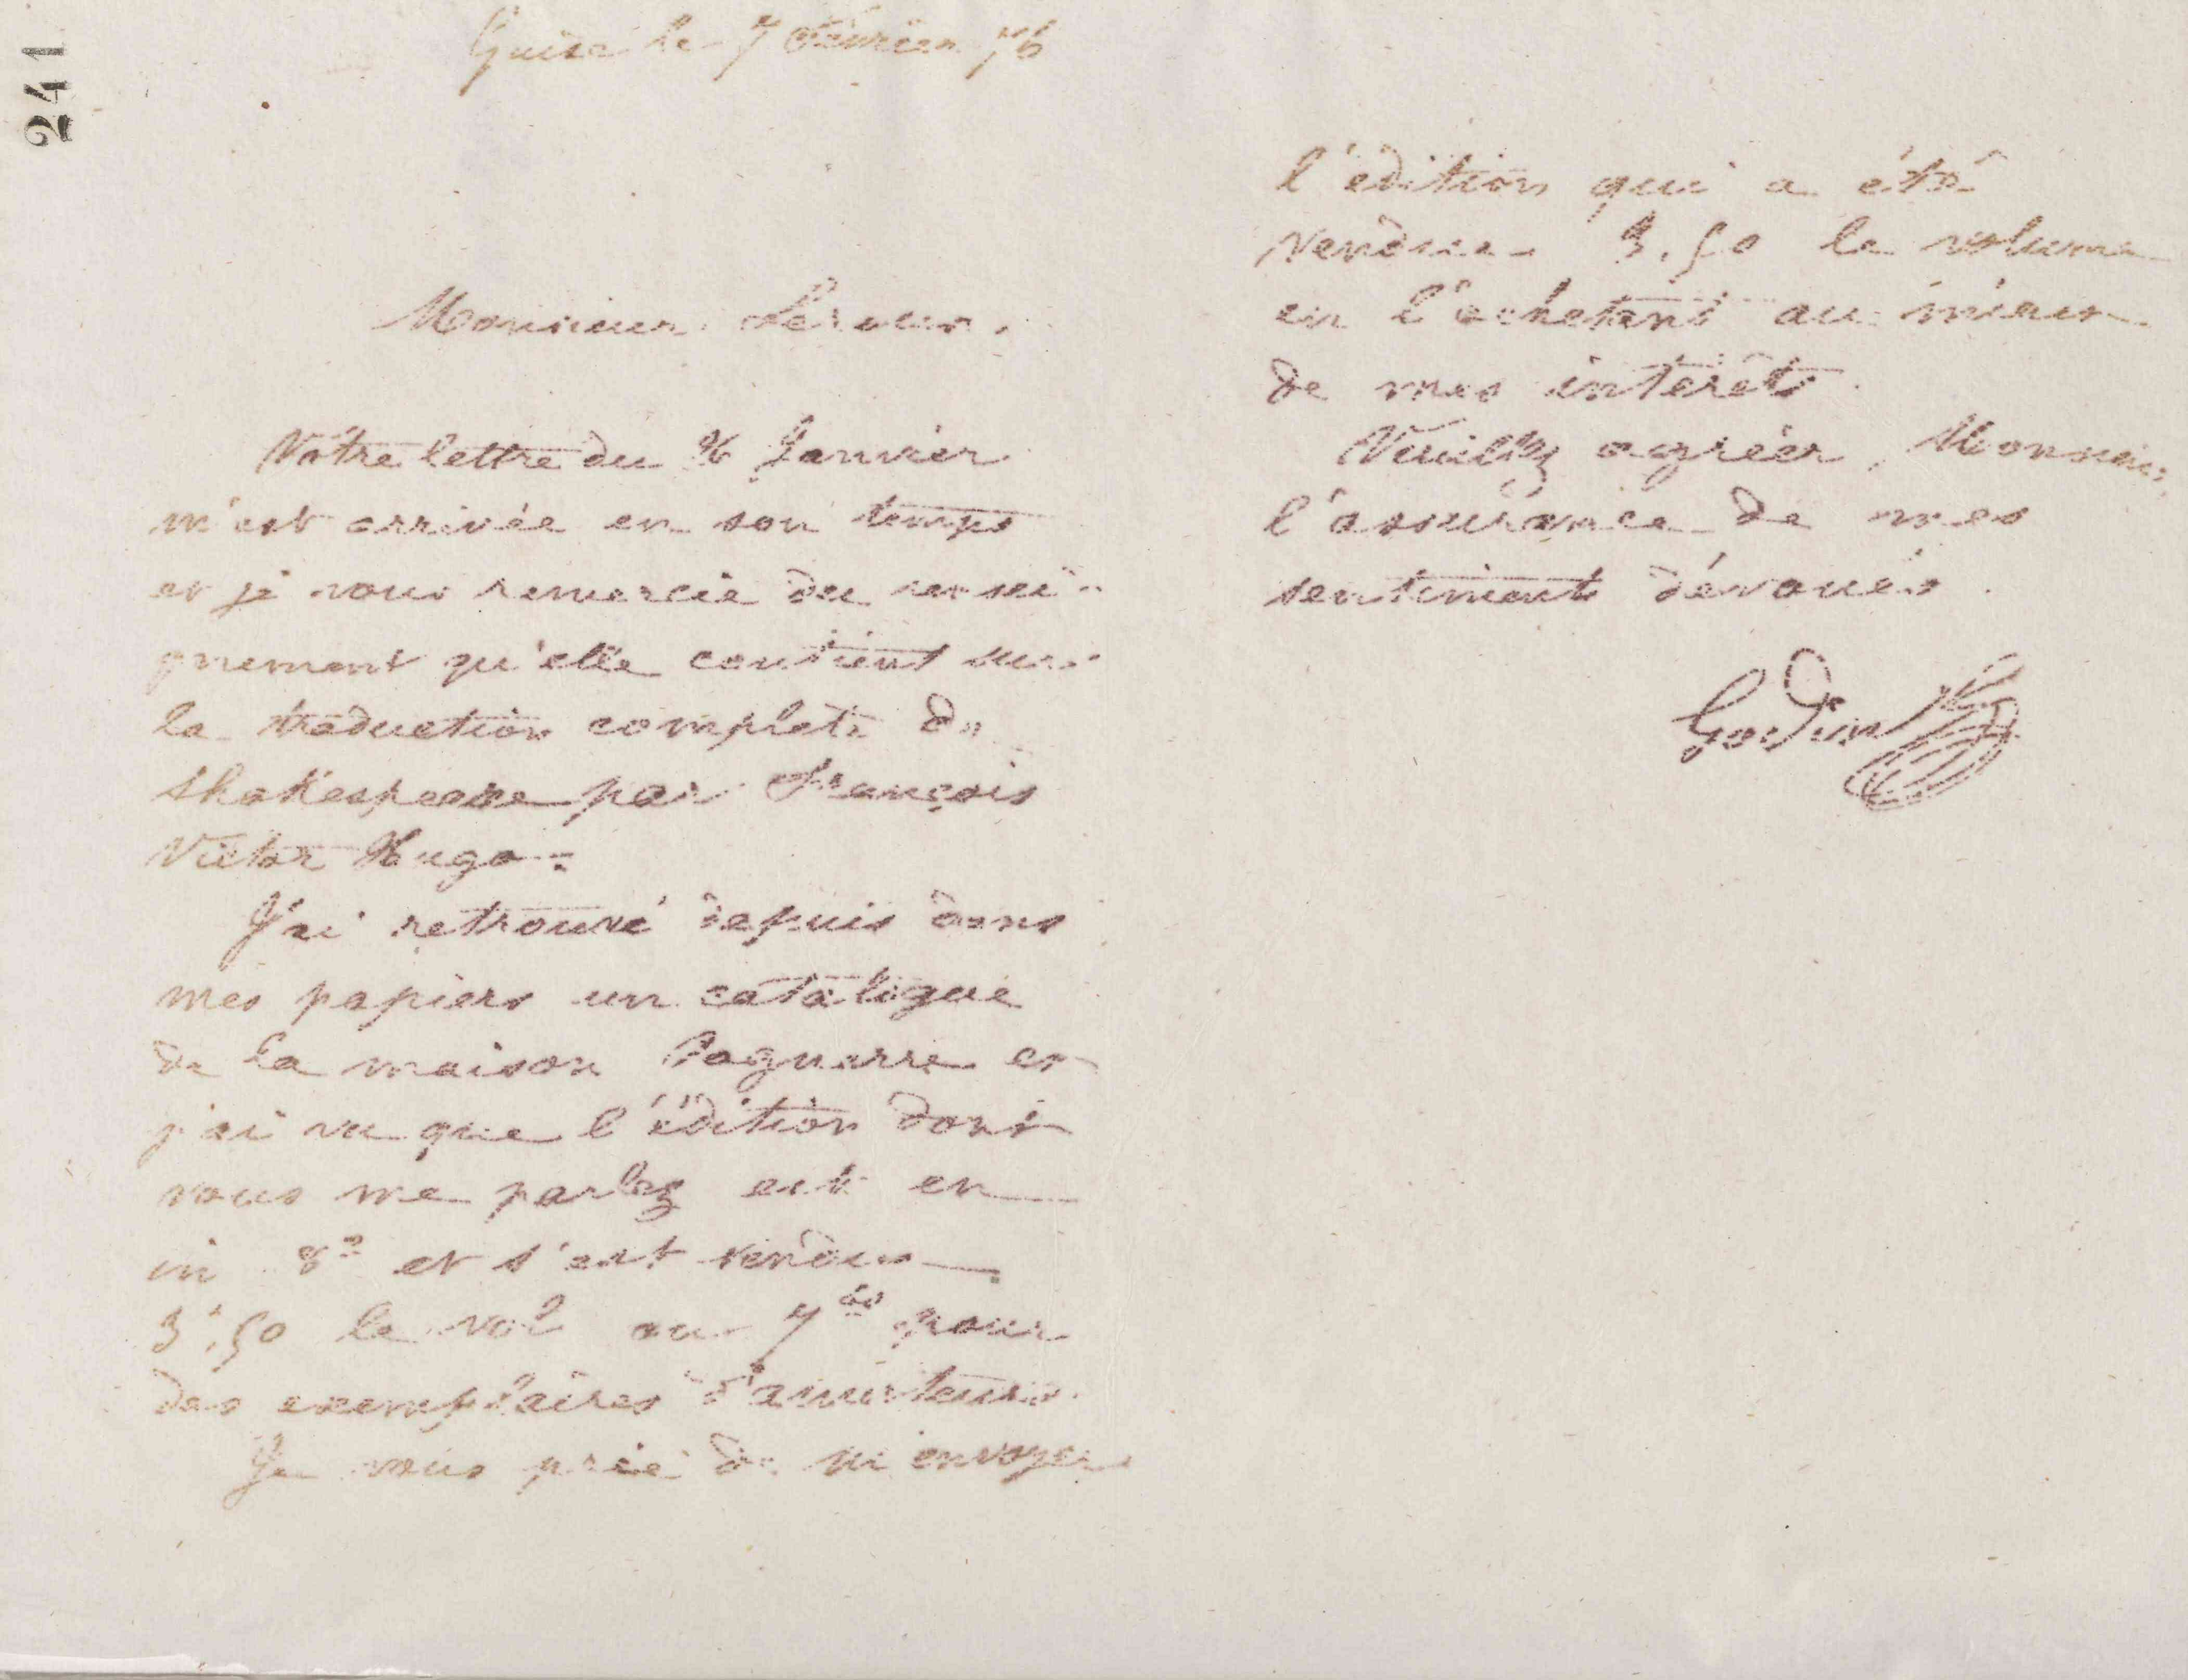 241
Guise le 7 Février 76
Monsieur Leroux.
Votre lettre du 26 Janvier
m'est arrivée en son temps
et je vous remercie du rensei-
gnement qu'elle contient sur
la traduction complète de
Shakespeare par François
Victor Hugo.
J'ai retrouvé depuis dans
mes papiers un catalogue
de la maison Pagnerre et
j'ai vu que l'édition dont
vous me parlez est en
in 8º et s'est vendue
3f,50 le vol ou 7 pour
des exemplaires d'amateurs.
Je vous prie de m'envoyer
l'édition qui a été
vendue 3,50 le volume
en l'achetant au mieux
de mes intérêts.
Veuillez agréer, Monsieur,
l'assurance de mes
sentiments dévoués.
Godin